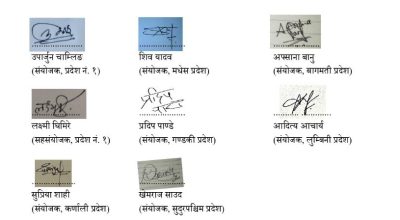 उपार्जुन चाम्लिङ
(संयोजक, प्रदेश नं. १)
शिव यादव
(संयोजक, मधेस प्रदेश)
अफ्साना बानु
(संयोजक, बागमती प्रदेश)
लक्ष्मी घिमिरे
(सहसंयोजक, प्रदेश नं. १)
प्रदिप
प्रदिप पाण्डे
(संयोजक, गण्डकी प्रदेश)
आदित्य आचार्य
(संयोजक, लुम्बिनी प्रदेश)
सुप्रिया शाही
(संयोजक, कर्णाली प्रदेश)
खेमराज साउद
(संयोजक, सुदुरपश्चिम प्रदेश)